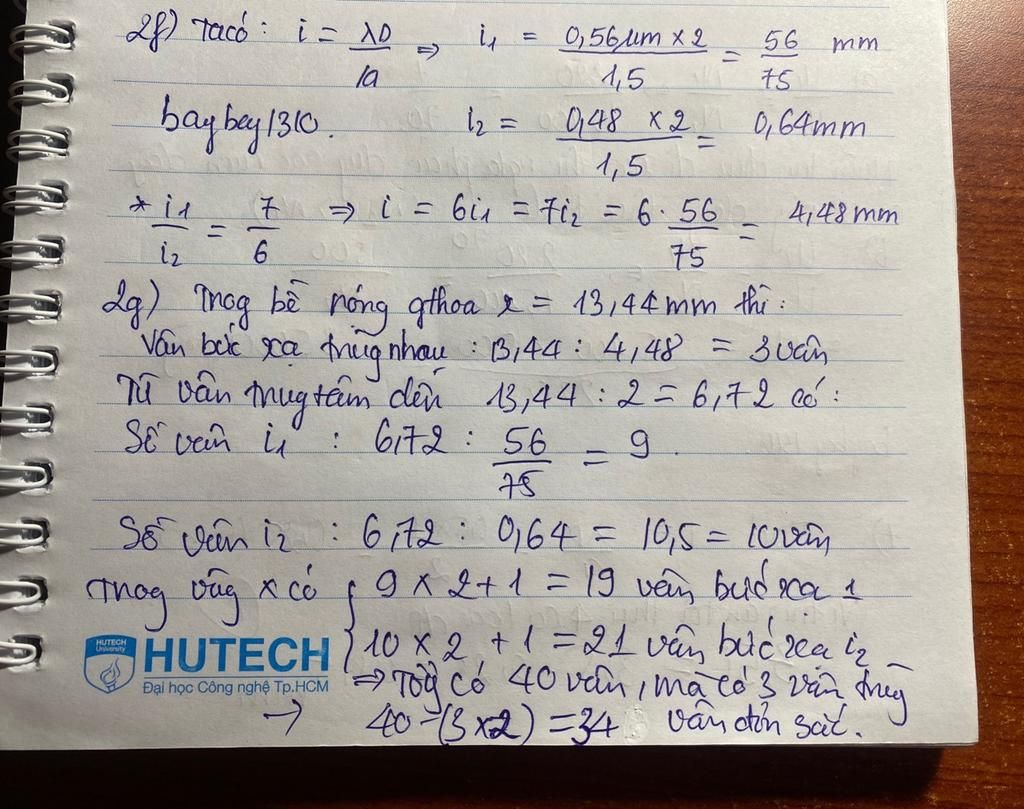 2f) Ta có : i = λD/a ⇒ i1 = 0,56µm x 2/1,5 = 56/75 mm
baybey1310. i2 = 0,48 x 2/1,5 = 0,64mm
* i1/i2 = 7/6 ⇒ i = 6i1 = 7i2 = 6 . 56/75 = 4,48mm
2g) Trog bề rộng gthoa x = 13,44mm thì :
Vân bức xạ trùg nhau : 13,44 : 4,48 = 3 vân
Từ vân trug tâm đến 13,44 : 2 = 6,72 có :
Số vân i1 : 6,72 : 56/75 = 9 .
Số vân i2 : 6,72 : 0,64 = 10,5 = 10 vân
Trog vùg x có { 9 x 2 + 1 = 19 vân bức xạ 1
10 x 2 + 1 = 21 vân bức xạ i2
HUTECH University
HUTECH
Đại học Công nghệ Tp.HCM
⇒ Tổg có 40 vân, mà có 3 vân trùg
→ 40 - (3 x 2) = 34 vân đơn sắc.